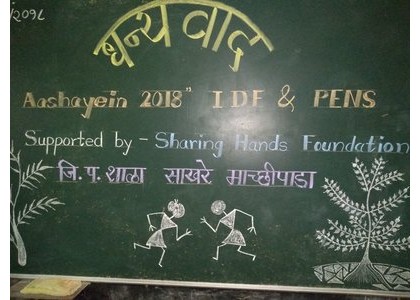 धन्यवाद
Aashayein 2018" IDF & PENS
Supported by - Sharing Hands Foundation
जि.प.शाळा साखरे माच्छीपाडा